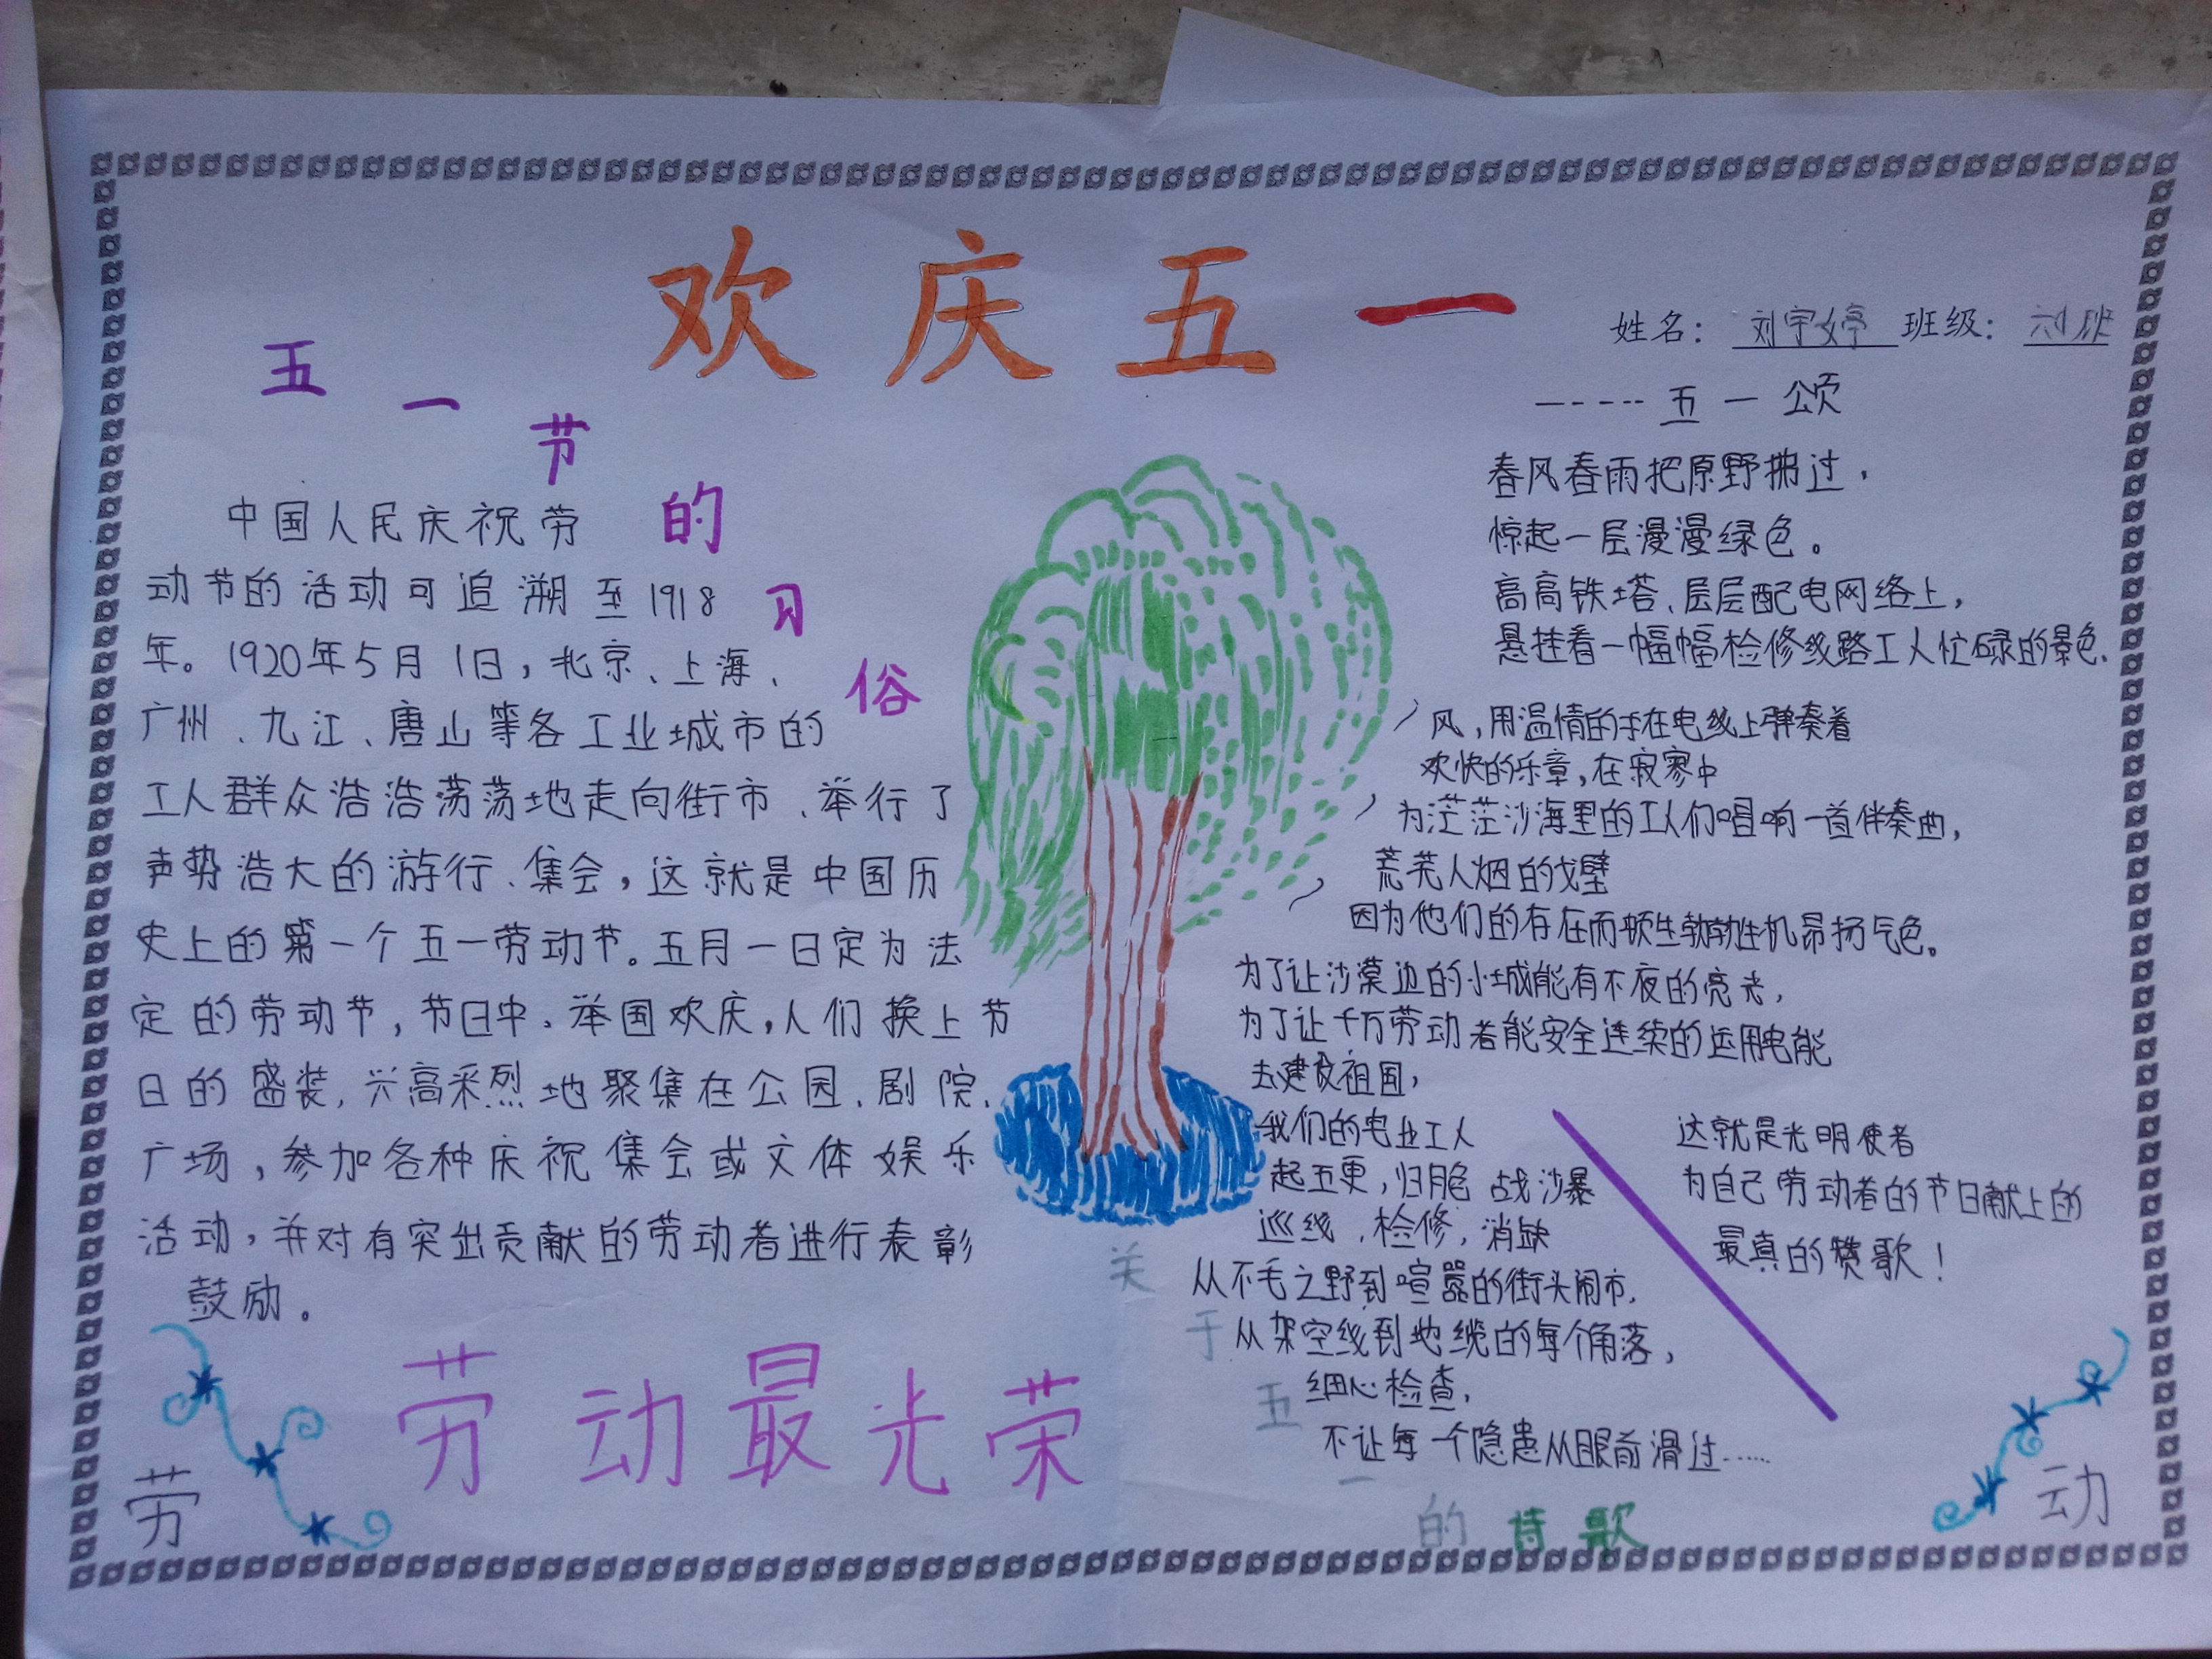 欢庆五一
姓名：刘宇婷 班级：六
五一节的习俗
中国人民庆祝劳
动节的活动可追溯至1918
年。1920年5月1日，北京、上海、
广州、九江、唐山等各工业城市的
工人群众浩浩荡荡地走向街市、举行了
声势浩大的游行、集会，这就是中国历
史上的第一个五一劳动节。五月一日定为法
定的劳动节，节日中，举国欢庆，人们换上节
日的盛装，兴高采烈地聚集在公园、剧院、
广场，参加各种庆祝集会或文体娱乐
活动，并对有突出贡献的劳动者进行表彰
鼓励。
劳动最光荣
劳
-----五一颂
春风春雨把原野拂过，
惊起一层漫漫绿色。
高高铁塔、层层配电网络上，
悬挂着一幅幅检修线路工人忙碌的景色、
风，用温情的手在电线上弹奏着
欢快的乐章，在寂寥中
为茫茫沙海里的工人们唱响一首伴奏曲，
荒芜人烟的戈壁
因为他们的存在而顿生勃勃生机昂扬气色。
为了让沙漠边的小城能有不夜的亮光，
为了让千万劳动者能安全连续的运用电能
去建设祖国，
我们的电业工人
起五更，归月色 战沙暴
巡线、检修，消缺
从不毛之野到喧嚣的街头闹市，
从架空线到地缆的每个角落，
细心检查，
不让每一个隐患从眼前滑过……
这就是光明使者
为自己劳动者的节日献上的
最真的赞歌！
关于五一的诗歌
动